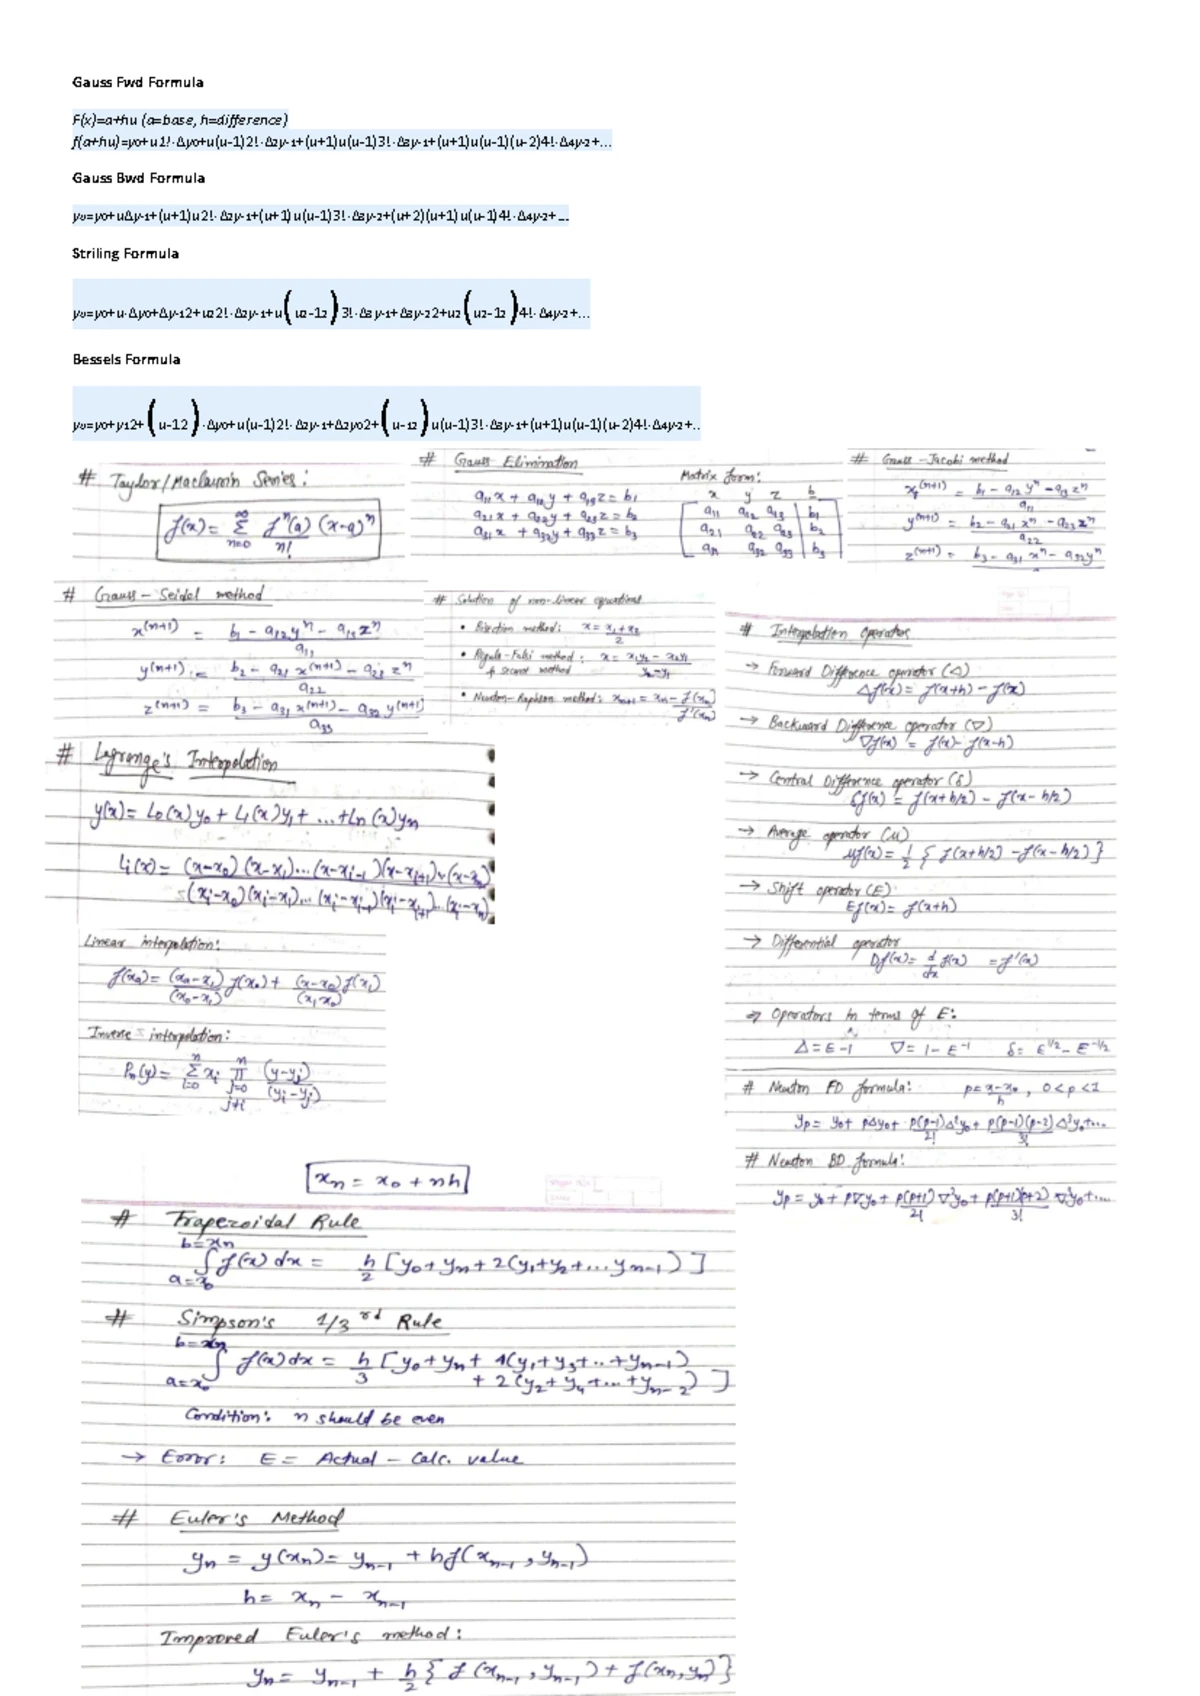 Gauss Fwd Formula
F(x)=a+hu (a=base, h=difference)
f(a+hu)=y0+u1!·Δy0+u(u-1)2!·Δ2y-1+(u+1)u(u-1)3!·Δ3y-1+(u+1)u(u-1)(u-2)4!·Δ4y-2+...
Gauss Bwd Formula
yu=y0+uΔy-1+(u+1)u2!·Δ2y-1+(u+1)u(u-1)3!·Δ3y-2+(u+2)(u+1)u(u-1)4!·Δ4y-2+...
Striling Formula
yu=y0+u·Δy0+Δy-12+u22!·Δ2y-1+u(u2-12)3!·Δ3y-1+Δ3y-22+u2(u2-12)4!·Δ4y-2+...
Bessels Formula
yu=y0+y12+(u-12)·Δy0+u(u-1)2!·Δ2y-1+Δ2y02+(u-12)u(u-1)3!·Δ3y-1+(u+1)u(u-1)(u-2)4!·Δ4y-2+..
# Taylor/Maclaurin Series:
f(x) = ∞ Σ n=0 fⁿ(a) (x-a)ⁿ / n!
# Gauss Elimination
a₁₁x + a₁₂y + a₁₃z = b₁
a₂₁x + a₂₂y + a₂₃z = b₂
a₃₁x + a₃₂y + a₃₃z = b₃
Matrix form:
x y z b
a₁₁ a₁₂ a₁₃ | b₁
a₂₁ a₂₂ a₂₃ | b₂
a₃₂ a₃₃ | b₃
# Gauss-Jacobi method
x^(n+1) = b₁ - a₁₂yⁿ - a₁₃zⁿ / a₁₁
y^(n+1) = b₂ - a₂₁xⁿ - a₂₃zⁿ / a₂₂
z^(n+1) = b₃ - a₃₁xⁿ - a₃₂yⁿ
# Gauss-Seidel method
x^(n+1) = b₁ - a₁₂yⁿ - a₁₃zⁿ / a₁₁
y^(n+1) = b₂ - a₂₁x^(n+1) - a₂₃zⁿ / a₂₂
z^(n+1) = b₃ - a₃₁x^(n+1) - a₃₂y^(n+1) / a₃₃
# Solution of non-linear equations
• Bisection method: x = x₁+x₂ / 2
• Regula-Falsi method: x = x₁y₂ - x₂y₁ / y₂-y₁
& secant method
• Newton-Raphson method: xₙ₊₁ = xₙ - f(xₙ) / f'(xₙ)
# Interpolation operators
→ Forward Difference operator (Δ)
Δf(x) = f(x+h) - f(x)
→ Backward Difference operator (∇)
∇f(x) = f(x) - f(x-h)
→ Central Difference operator (δ)
δf(x) = f(x+h/2) - f(x-h/2)
→ Average operator (μ)
μf(x) = 1/2 { f(x+h/2) - f(x-h/2) }
→ Shift operator (E)
Ef(x) = f(x+h)
→ Differential operator
Df(x) = d/dx f(x) = f'(x)
⇒ Operators in terms of E:
Δ = E-1 ∇ = 1-E⁻¹ δ = E^1/2 - E^-1/2
# Newton FD formula: p = x-x₀ / h , 0<p<1
yp = y₀ + pΔy₀ + p(p-1)/2! Δ²y₀ + p(p-1)(p-2)/3! Δ³y₀+...
# Newton BD formula:
yp = y₀ + p∇y₀ + p(p+1)/2! ∇²y₀ + p(p+1)(p+2)/3! ∇³y₀+...
# Lagrange's Interpolation
y(x) = L₀(x)y₀ + L₁(x)y₁ + ... + Ln(x)yn
Li(x) = (x-x₀)(x-x₁)...(x-xᵢ₋₁)(x-xᵢ₊₁)..(x-xₙ)
= (xᵢ-x₀)(xᵢ-x₁)...(xᵢ-xᵢ₋₁)(xᵢ-xᵢ₊₁)..(xᵢ-xₙ)
Linear interpolation:
f(xₐ) = (xₐ-x₁)/(x₀-x₁) f(x₀) + (x-x₀)f(x₁)/(x₁-x₀)
Inverse interpolation:
Pn(y) = n Σ i=0 xᵢ n Π j=0 j≠i (y-yⱼ)/(yᵢ-yⱼ)
xₙ = x₀ + nh
# Trapezoidal Rule
b=xₙ ∫ a=x₀ f(x) dx = h/2 [y₀+yₙ+2(y₁+y₂+...yₙ₋₁)]
# Simpson's 1/3rd Rule
b=xₙ ∫ a=x₀ f(x) dx = h/3 [y₀+yₙ+4(y₁+y₃+..+yₙ₋₁)
+ 2(y₂+y₄+...+yₙ₋₂)]
Condition: n should be even
→ Error: E = Actual - Calc. value
# Euler's Method
yₙ = y(xₙ) = yₙ₋₁ + hf(xₙ₋₁, yₙ₋₁)
h = xₙ - xₙ₋₁
Improved Euler's method:
yₙ = yₙ₋₁ + h/2 { f(xₙ₋₁, yₙ₋₁) + f(xₙ, yₙ) }